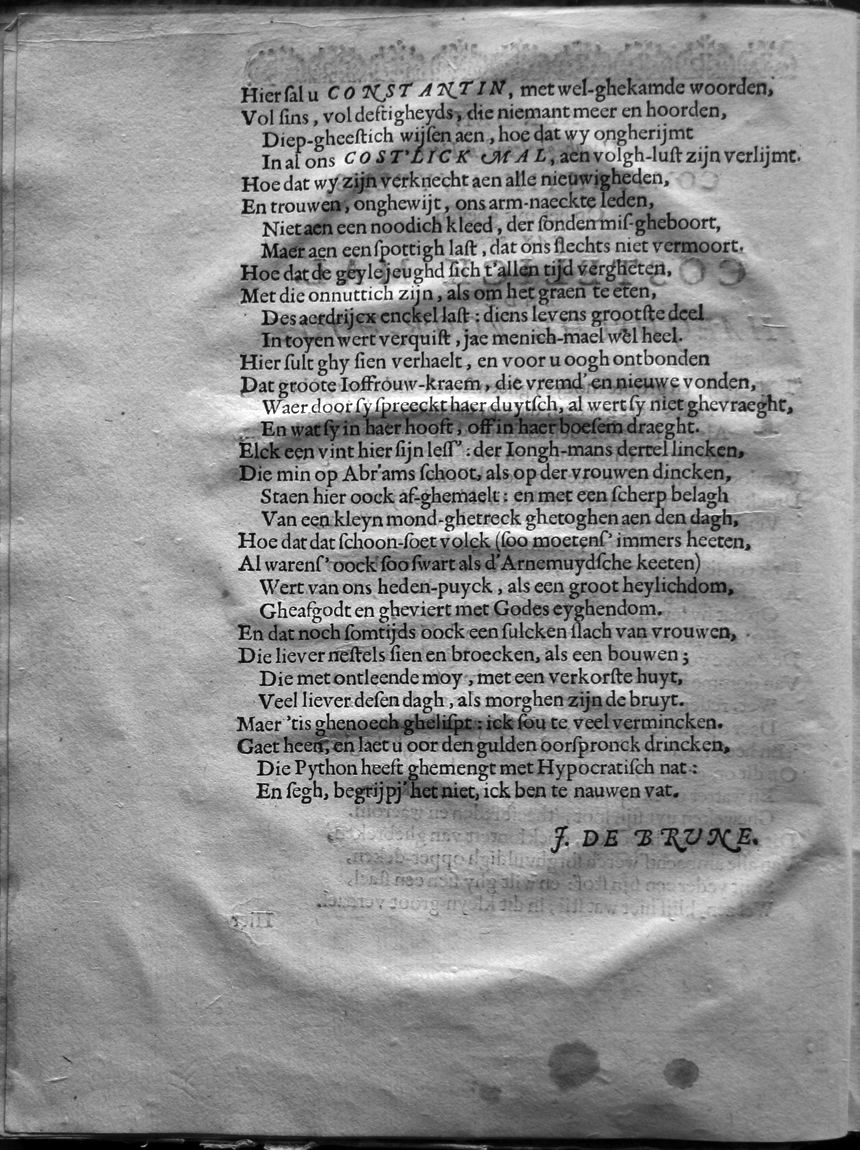 Hier ſal u CONSTANTIN, met wel-ghekamde woorden,
Vol ſins, vol deſtigheyds, die niemant meer en hoorden,
Diep-gheeſtich wijſen aen, hoe dat wy ongherijmt
In al ons COST'LICK MAL, aen volgh-luſt zijn verlijmt.
Hoe dat wy zijn verknecht aen alle nieuwigheden,
En trouwen, onghewijt, ons arm-naeckte leden,
Niet aen een noodich kleed, der ſonden miſ-gheboort,
Maer aen een ſpottigh laſt, dat ons ſlechts niet vermoort.
Hoe dat de geyle jeughd ſich t'allen tijd vergheten,
Met die onnuttich zijn, als om het graen te eten,
Des aerdrijcx enckel laſt: diens levens grootſte deel
In toyen wert verquiſt, jae menich-mael wel heel.
Hier ſult ghy ſien verhaelt, en voor u oogh ontbonden
Dat groote Ioffrouw-kraem, die vremd' en nieuwe vonden,
Waer door ſy ſpreeckt haer duytſch, al wert ſy niet ghevraeght,
En wat ſy in haer hooft, off in haer boeſem draeght.
Elck een vint hier ſijn leſſ': der Iongh-mans dertel lincken,
Die min op Abr'ams ſchoot, als op der vrouwen dincken,
Staen hier oock af-ghemaelt: en met een ſcherp belagh
Van een kleyn mond-ghetreck ghetoghen aen den dagh,
Hoe dat dat ſchoon-ſoet volck (ſoo moetenſ' immers heeten,
Al warenſ' oock ſoo ſwart als d'Arnemuydſche keeten)
Wert van ons heden-puyck, als een groot heylichdom,
Gheafgodt en gheviert met Godes eyghendom.
En dat noch ſomtijds oock een ſulcken ſlach van vrouwen,
Die liever neſtels ſien en broecken, als een bouwen;
Die met ontleende moy, met een verkorſte huyt,
Veel liever deſen dagh, als morghen zijn de bruyt.
Maer 'tis ghenoech gheliſpt: ick ſou te veel vermincken.
Gaet heen, en laet u oor den gulden oorſpronck drincken,
Die Python heeft ghemengt met Hypocratiſch nat:
En ſegh, begrijpj' het niet, ick ben te nauwen vat.
J. DE BRUNE.